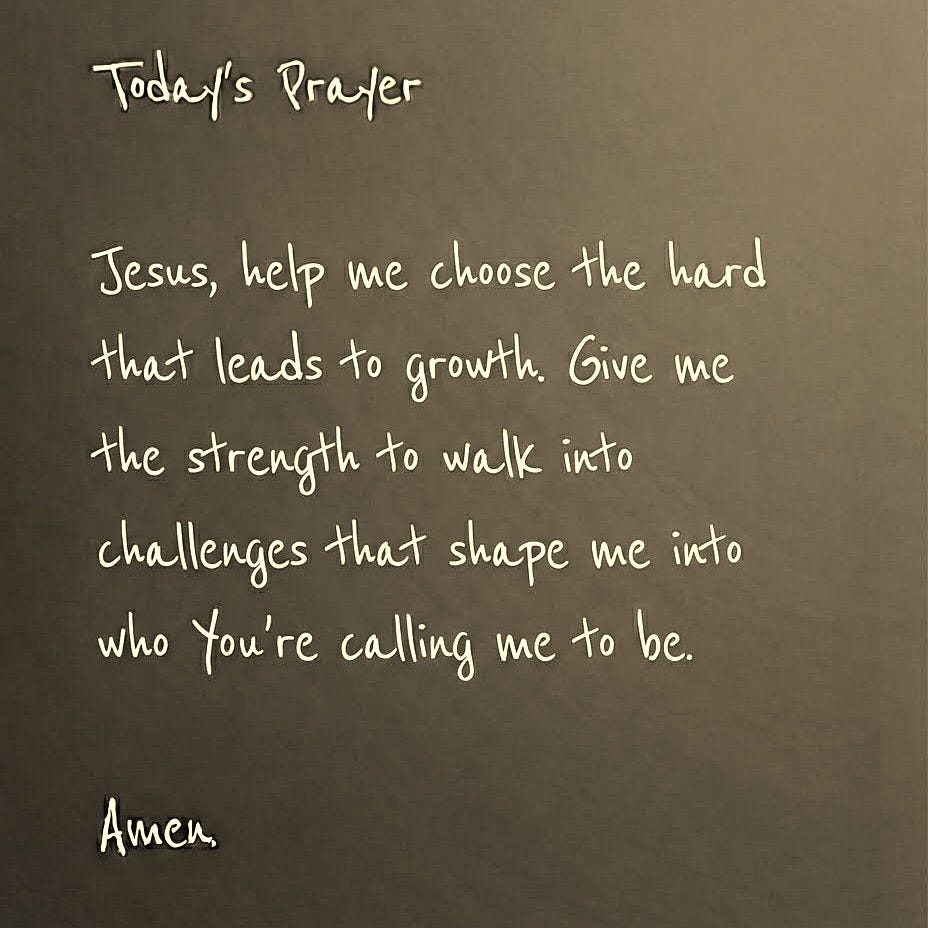 Today's Prayer
Jesus, help me choose the hard
that leads to growth. Give me
the strength to walk into
challenges that shape me into
who You're calling me to be.
Amen.